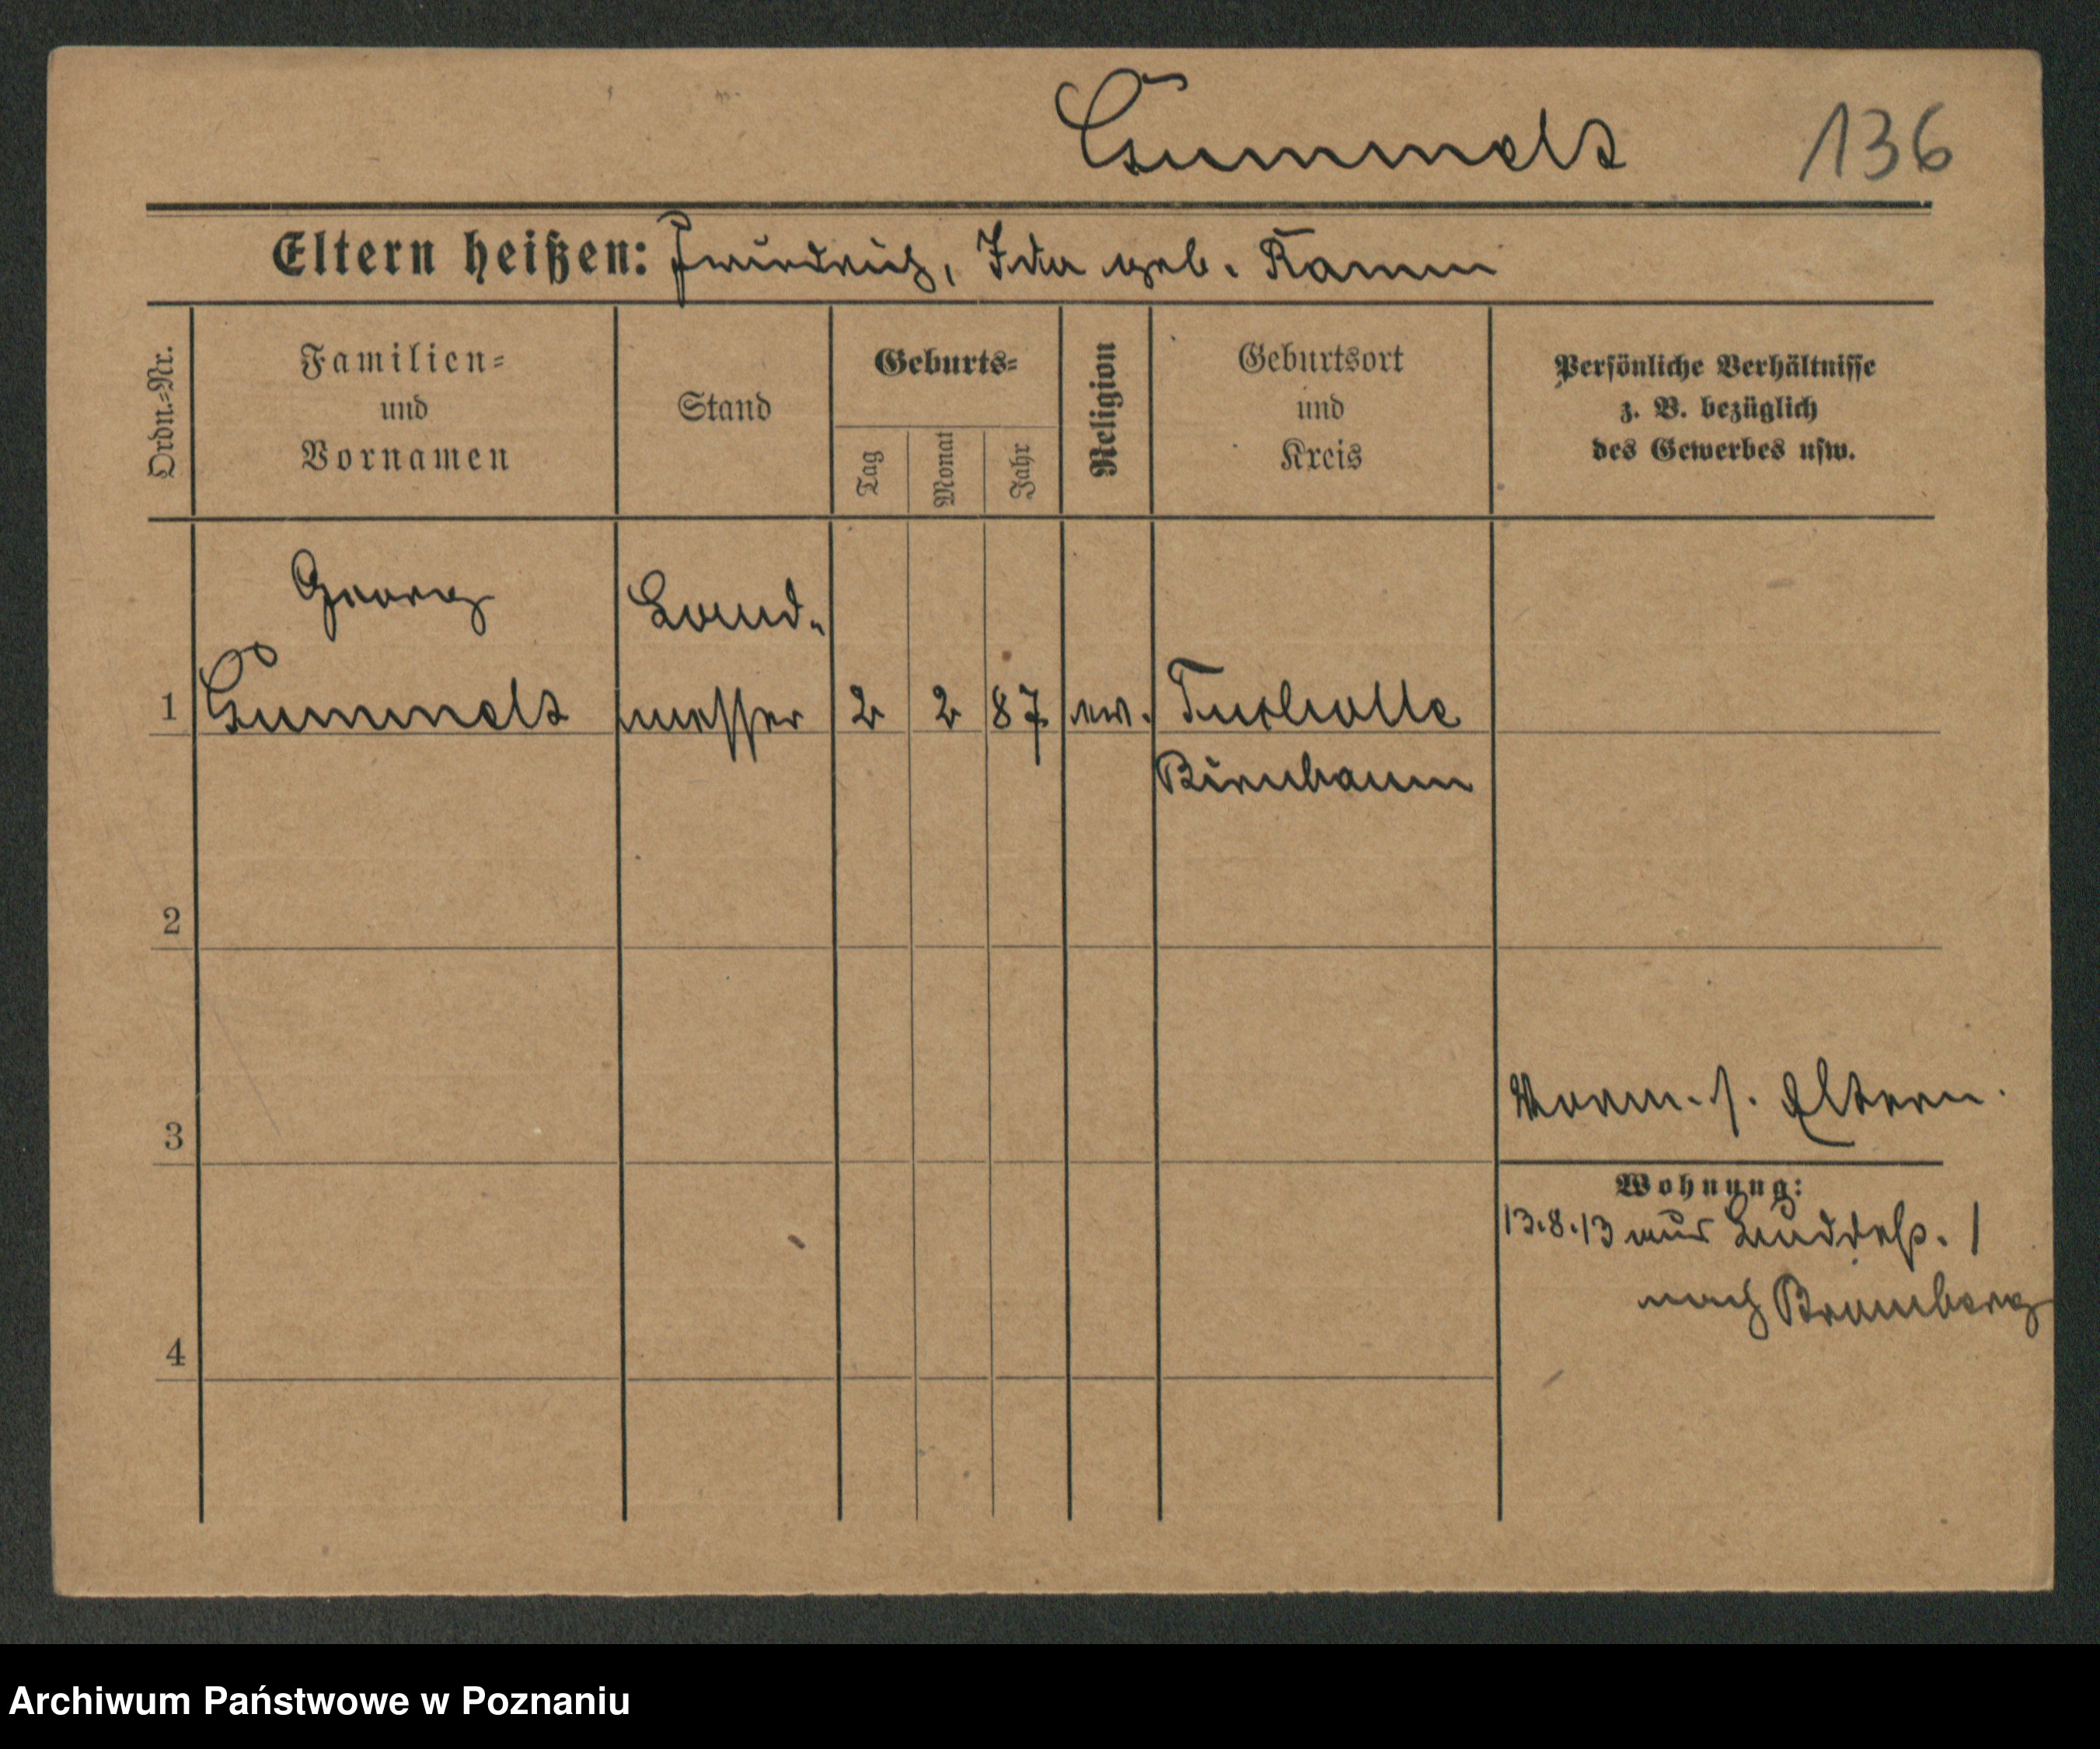 Gummelt 136
Eltern heißen: Friedrich, Ida geb. Ramm
Ordn.-Nr.
Familien-
und
Vornamen
Stand
Geburts-
Tag
Monat
Jahr
Religion
Geburtsort
und
Kreis
Persönliche Verhältnisse
z. B. bezüglich
des Gewerbes usw.
Georg Land-
1 Gummelt messer 2 2 87 ev. Tucholle
Birnbaum
2
Verm. s. Eltern.
3
Wohnung:
13.8.13 aus Buddestr. 1
nach Bromberg
4
Archiwum Państwowe w Poznaniu